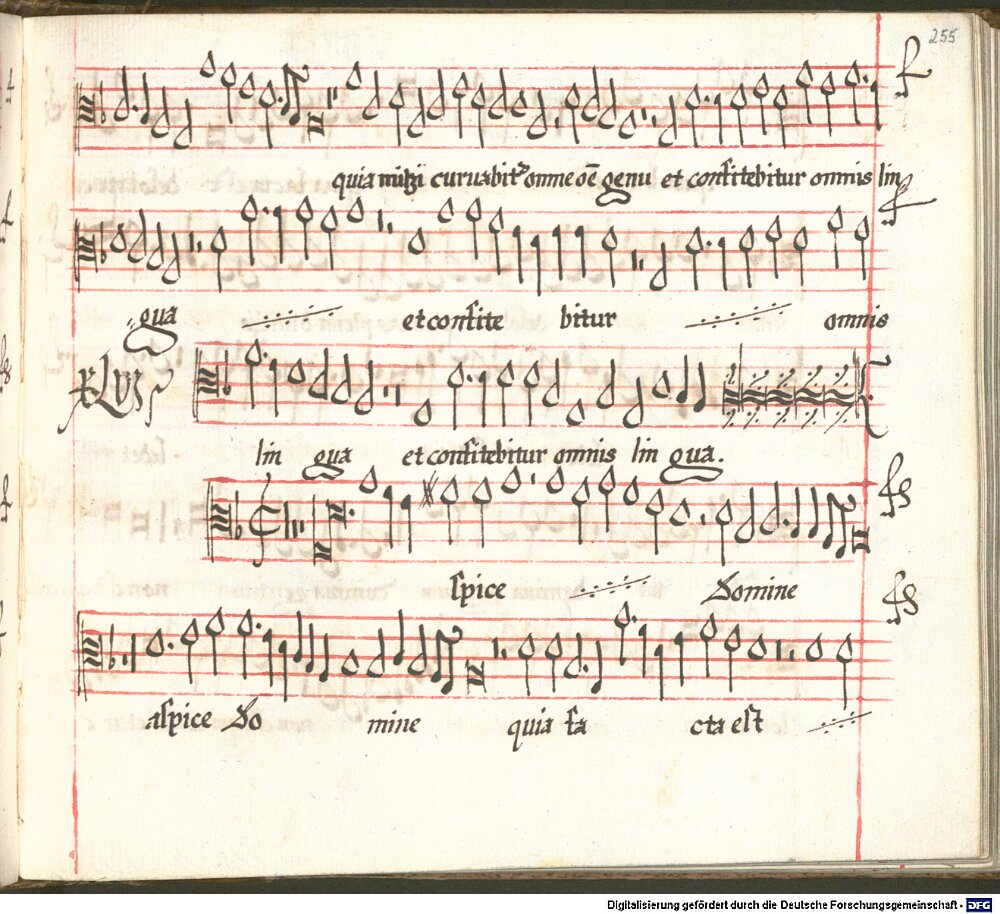 255
quia mihi curuabit᷑ omne oẽ genu et confitebitur omnis lin
gua et confite bitur omnis
lin gua et confitebitur omnis lin gua.
spice Domine
aspice Do mine quia fa cta est
Digitalisierung gefördert durch die Deutsche Forschungsgemeinschaft - DFG